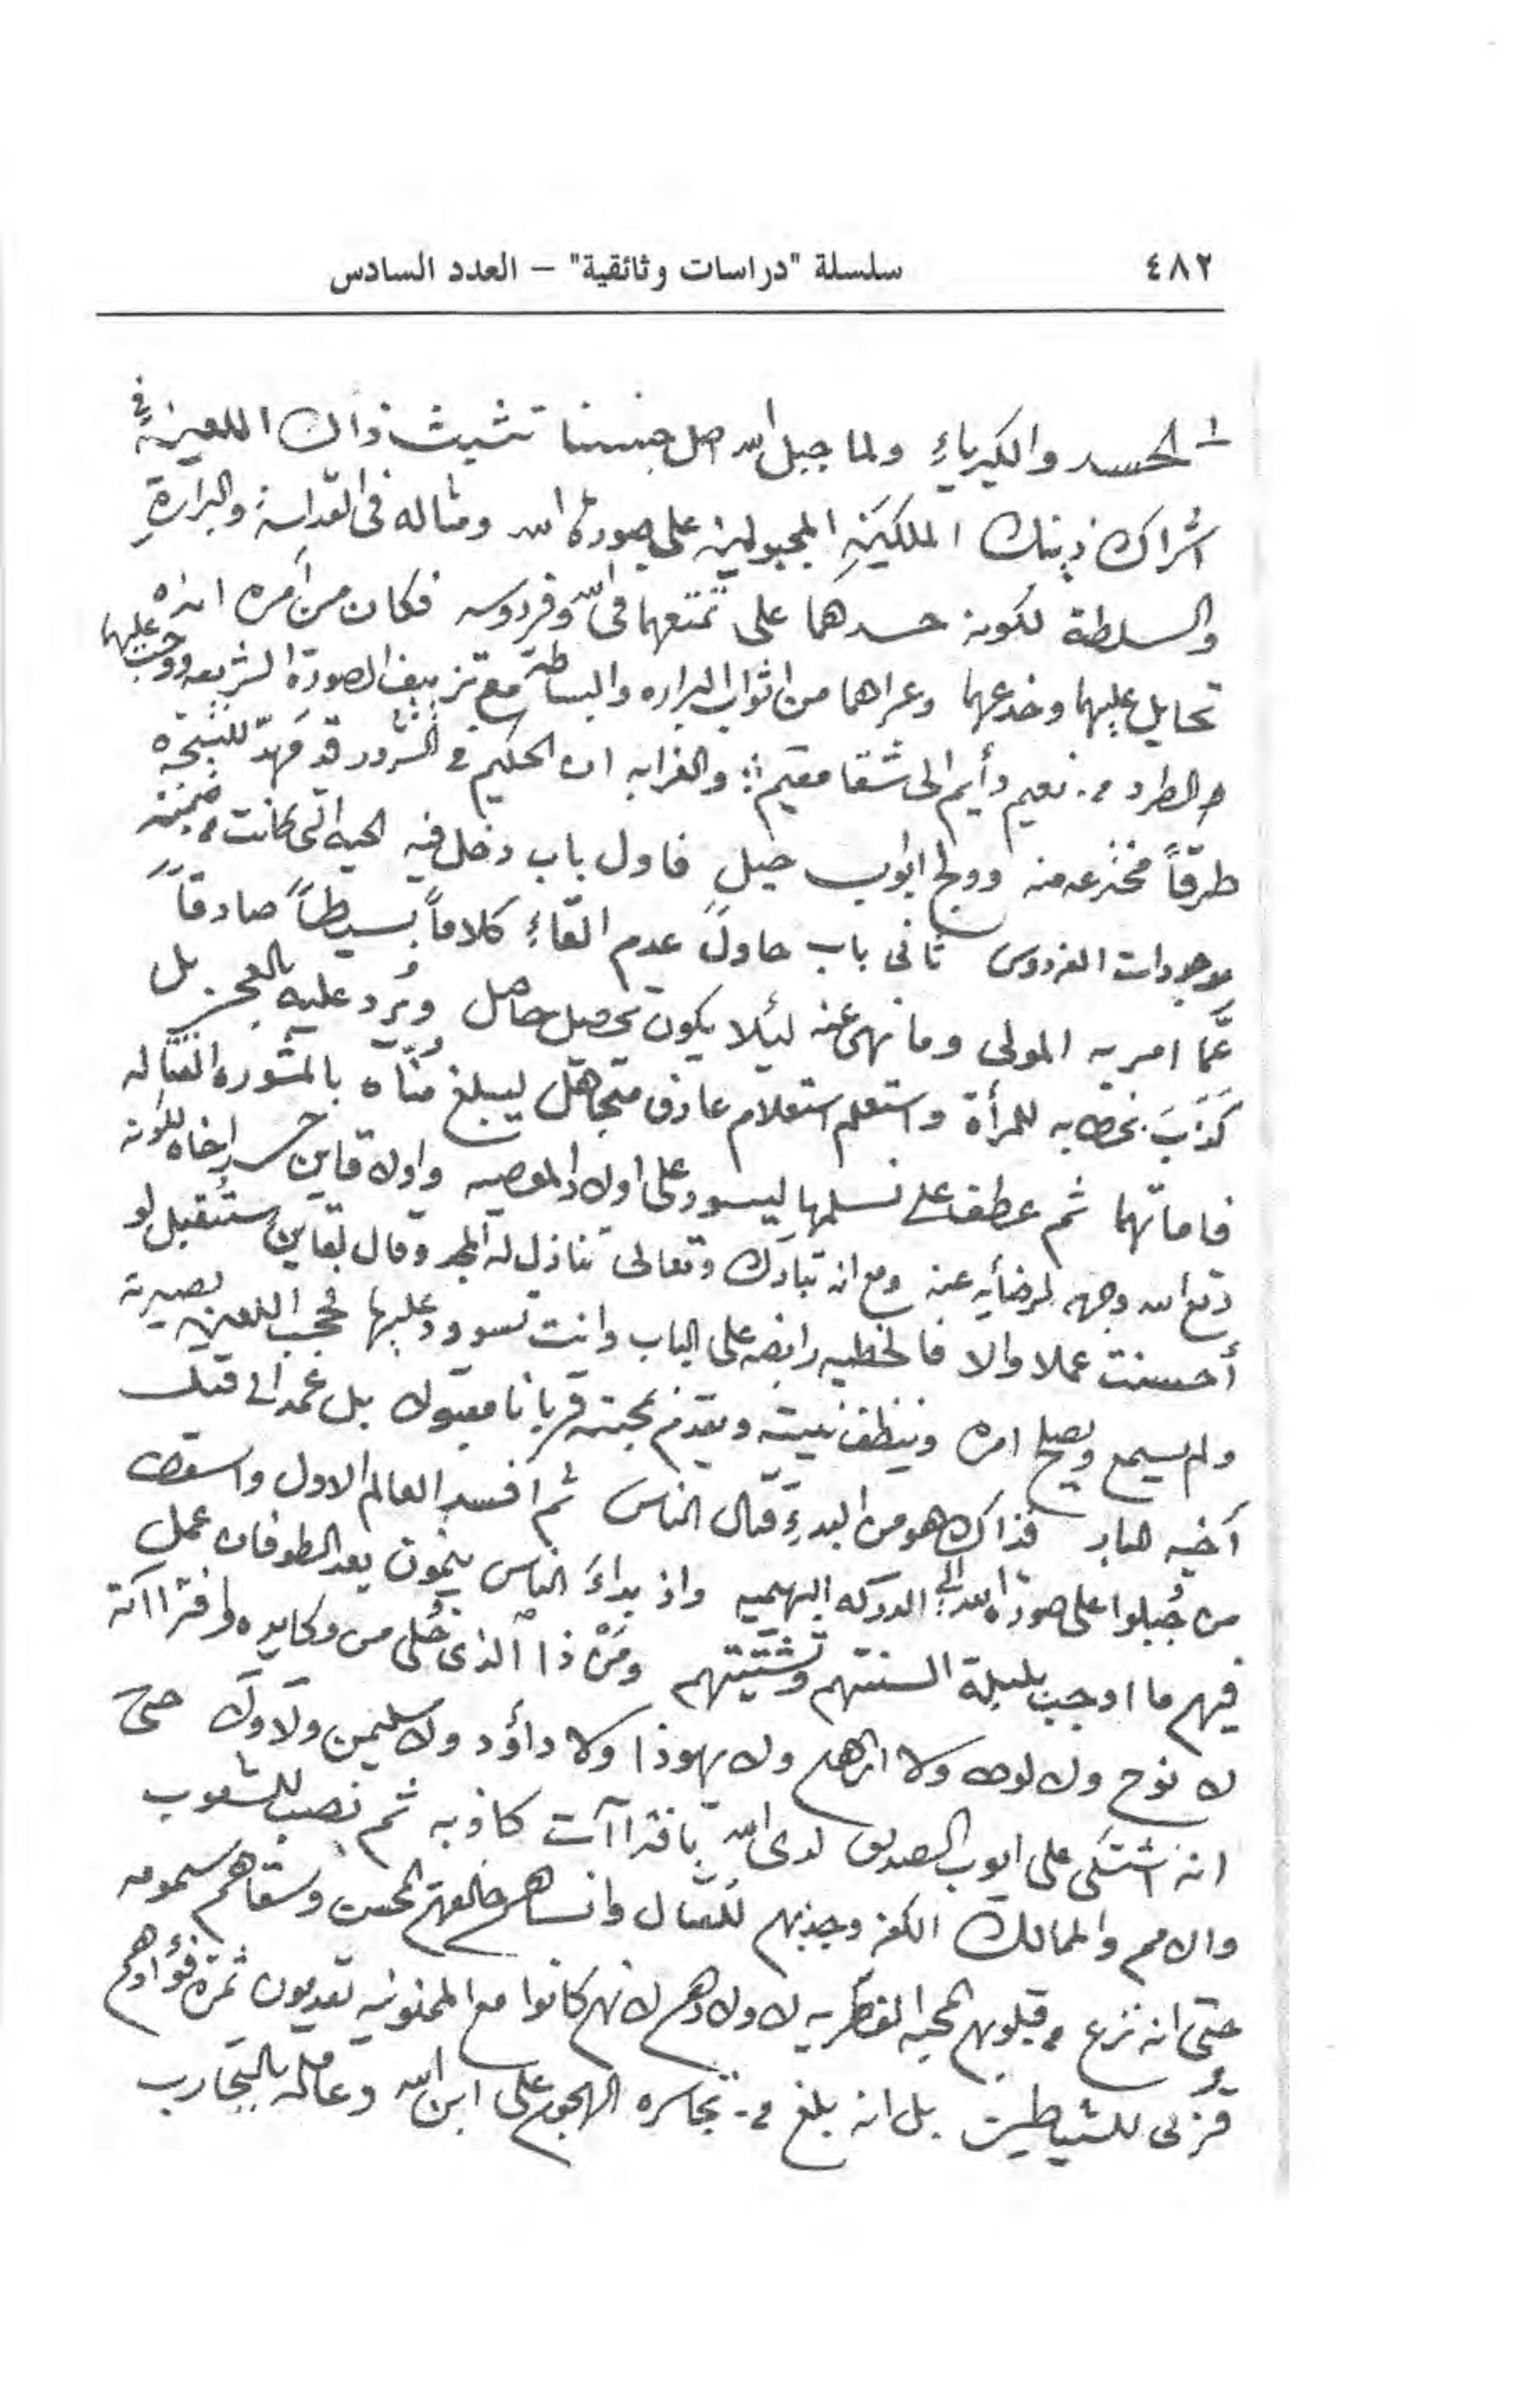 ٤٨٢ سلسلة "دراسات وثائقية" – العدد السادس
الحسد والكبرياءِ ولما جبل الله اصل جنسنا تشبث ذاك اللعين في
اشراك ذينك الملكَينِ المجبولين على صورة الله ومثاله فى القداسة والبرارةِ
والسلطة لكونه حسدهما على تمتعهما فى الله وفردوسه فكان من أمره انه
تحايل عليهما وخدعهما وعراهما من اثواب البراره والبساطة مع تزييف الصورة الشريفه ووجب عليهما
الطرد من نعيم دأيم الى شقا مقيم والغرابه ان الحكيم في الشرور قد مهدّ للنتيجه
طرقاً مخترعه منه وولج ابواب حيلٍ فاول باب دخل فيه الحيه التى كانت من ضمن
موجودات الفردوس ثانى باب حاول عدم القاءِ كلاماً بسيطاً صادقاً
عمَّا امر به المولى وما نهى عنه ليئلا يكون تحصيل حاصل ويُرد عليه بالعجز بل
كذَبَ بخطابه للمرأة واستعلم استعلام عارف متجاهل ليبلغ مُنّاه بالمشوره القتاله
فاماتهما ثم عطف على نسلهما ليسود على اولاد المعصيه واولا قاين حسد اخاه لكونه
رفع الله وجهه لرضأيه عنه ومع انه تبارك وتعالى تنازل له المجد وقال لقاين ستُقبل لو
أحسنت عملا والا فالخطيه رابضه على الباب وانت تسود عليها فحجب اللعين بصيرته
ولم يسمع ويصلح امره وينظف نيته ويقدم بمحبته قربانا مقبولا بل عمد الى قتل
أخيه البار فذاك هو من البدءِ قتّال الناس ثم افسد العالم الاول واسقط
من جُبلوا على صورة الله الى الدركه البهيميه واذ بداءَ الناس ينمون بعد الطوفان عمل
فيهم ما اوجب بلبلة السنتهم وتشتيتهم ومَنْ ذا الذى خُلى من مكايده وافتراآته
لا نوح ولا لوط ولا ابرهيم ولا يهوذا ولا دأود ولا سليمن ولا ولا حتى
انه اشتكى على ايوب الصديق لدى الله بافتراآت كاذبه ثم نصب للشعوب
والامم والممالك الكفر وجذبهم للضلال وانساهم خالقهم المحسن وسقاهم سمومه
حتى انه نزع من قلوبهم المحبه الفطريه لاولادهم لانهم كانوا مع الممنونيه يقدمون ثمرة فؤادهم
قربى للشياطين بل انه بلغ من تجاسره الهجوم على ابن الله وعامله بالتجارب